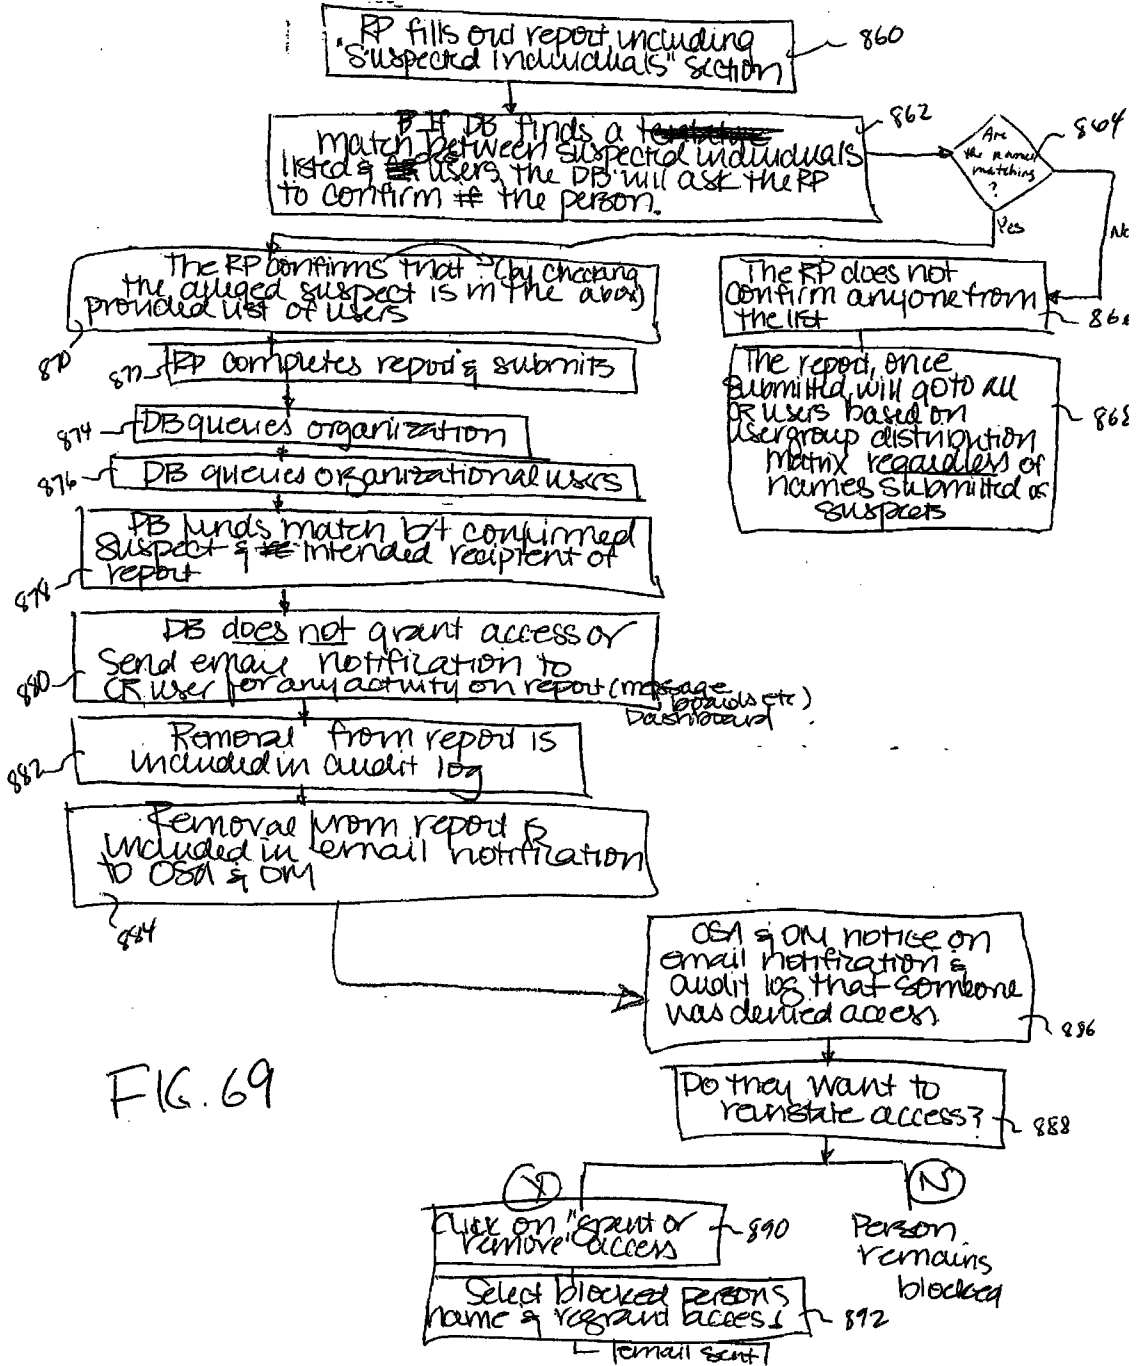 RP fills out report, including
"Suspected individuals" section
860
If DB finds a
match between suspected individuals
listed & users, the DB will ask the RP
to confirm if the person.
862
Are
the names
matching
?
864
Yes
No
The RP confirms that (by checking
the alleged suspect is in the a box)
provided list of users
870
The RP does not
confirm anyone from
the list
866
RP completes report & submits
872
The report, once
submitted, will go to all
CR users based on
usergroup distribution
matrix regardless of
names submitted as
suspects
868
DB queries organization
874
DB queries organizational users
876
DB finds match b/t confirmed
suspect & intended recipient of
report
878
DB does not grant access or
send email notification to
CR user for any activity on report (message
boards etc)
Dashboard
880
Removal from report is
included in audit log
882
Removal from report is
included in email notification
to OSA & OM
884
OSA & OM notice on
email notification &
audit log that someone
was denied access
886
FIG. 69
Do they want to
reinstate access?
888
Y
N
Click on "grant or
remove" access
890
Person
remains
blocked
Select blocked persons
name & regrant access
892
email sent